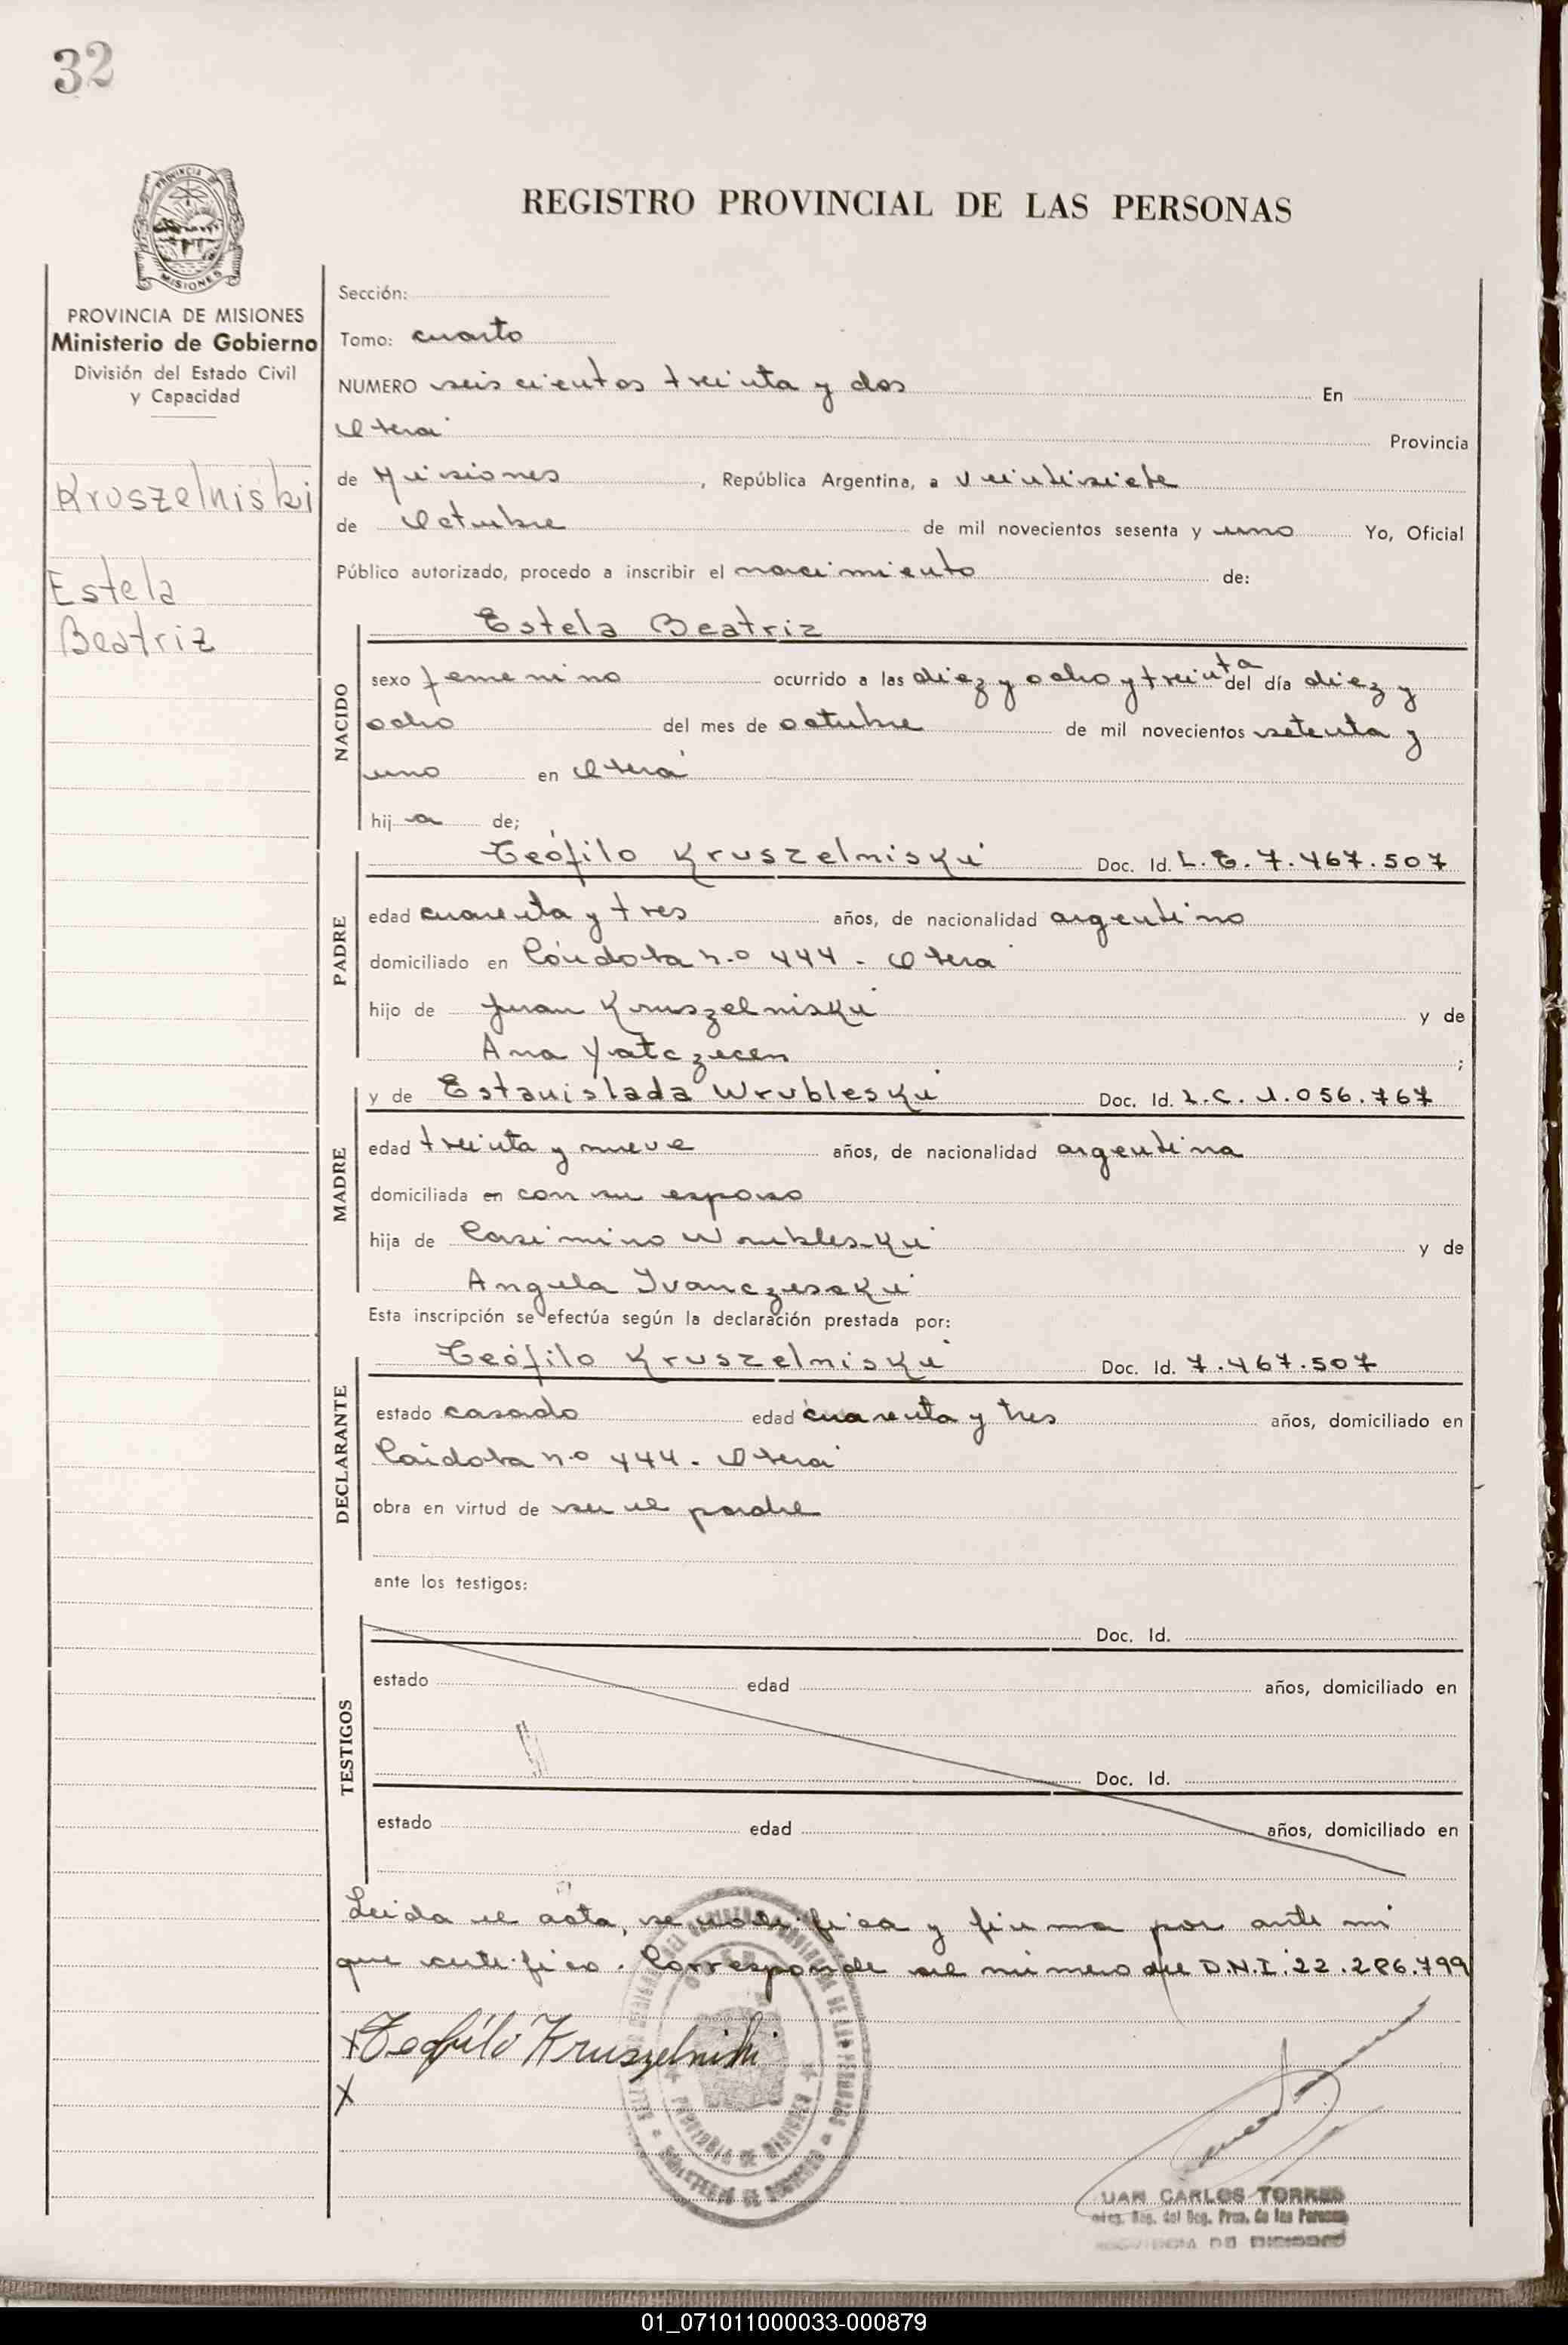 32
REGISTRO PROVINCIAL DE LAS PERSONAS
PROVINCIA DE MISIONES
Ministerio de Gobierno
División del Estado Civil
y Capacidad
Kruszelniski
Estela
Beatriz
Sección:
Tomo: cuarto
NUMERO seiscientos treinta y dos En
Oberá Provincia
de Misiones, República Argentina, a veintisiete
de Octubre de mil novecientos sesenta y uno Yo, Oficial
Público autorizado, procedo a inscribir el nacimiento de:
NACIDO
Estela Beatriz
sexo femenino ocurrido a las diez y ocho y treinta del día diez y
ocho del mes de octubre de mil novecientos setenta y
uno en Oberá
hij a de;
PADRE
Teófilo Kruszelniski Doc. Id. L.E. 7.467.507
edad cuarenta y tres años, de nacionalidad argentino
domiciliado en Córdoba n.o 444 - Oberá
hijo de Juan Kruszelniski y de
Ana Yatczecen ;
MADRE
y de Estanislada Wrubleski Doc. Id. L.C. 1.056.767
edad treinta y nueve años, de nacionalidad argentina
domiciliada en con su esposo
hija de Casimiro Wrubleski y de
Angela Ivanczeski
Esta inscripción se efectúa según la declaración prestada por:
DECLARANTE
Teófilo Kruszelniski Doc. Id. 7.467.507
estado casado edad cuarenta y tres años, domiciliado en
Córdoba n.o 444. Oberá
obra en virtud de ser el padre
ante los testigos:
TESTIGOS
Doc. Id.
estado edad años, domiciliado en
Doc. Id.
estado edad años, domiciliado en
Leida el acta, se ratifica y firma por ante mi
que certifico. Corresponde al número de D.N.I. 22.286.799
x Teofilo Kruszelniski
x
UAN CARLOS TORRES
Reg. del Reg. Prov. de las Personas
PROVINCIA DE MISIONES
01_071011000033-000879